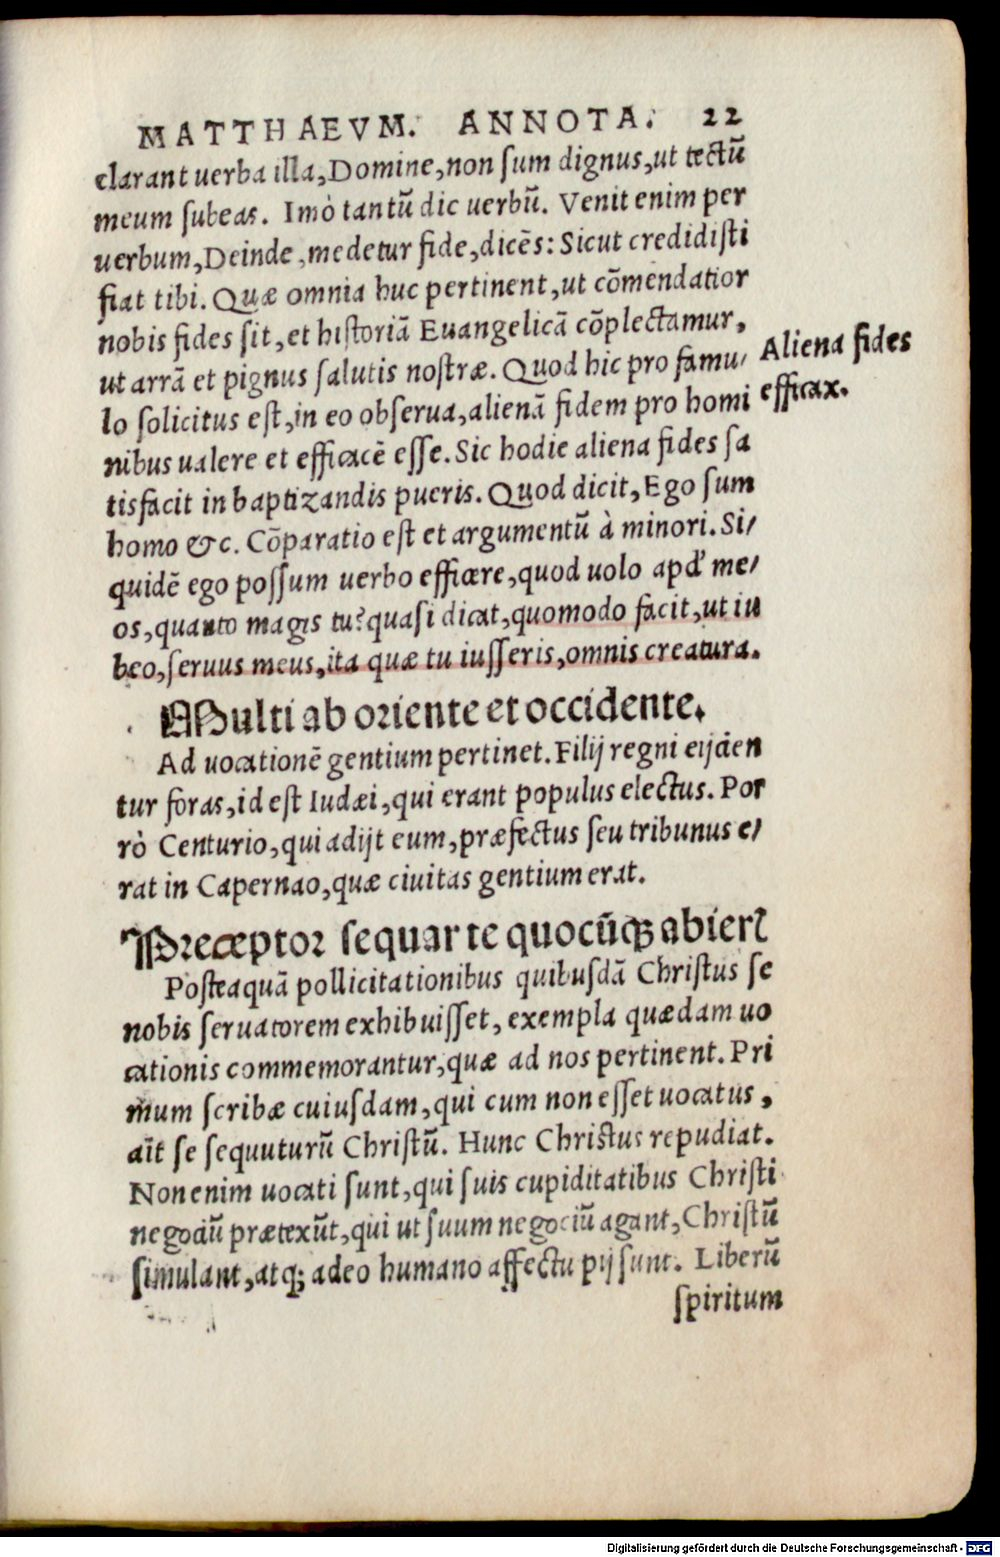 MATTHAEVM. ANNOTA. 22
clarant uerba illa, Domine, non ſum dignus, ut tectū
meum ſubeas. Imò tantū dic uerbū. Venit enim per
uerbum, Deinde, medetur fide, dicēs: Sicut credidiſti
fiat tibi. Quæ omnia huc pertinent, ut cōmendatior
nobis fides ſit, et hiſtoriā Euangelicā cōplectamur,
ut arrā et pignus ſalutis noſtræ. Quod hic pro famu/
lo ſolicitus eſt, in eo obſerua, alienā fidem pro homi
nibus ualere et efficacē eſſe. Sic hodie aliena fides ſa
tisfacit in baptizandis pueris. Quod dicit, Ego ſum
homo &c. Cōparatio eſt et argumentū à minori. Si/
quidē ego poſſum uerbo efficere, quod uolo apd' me/
os, quanto magis tu? quaſi dicat, quomodo facit, ut iu
beo, ſeruus meus, ita quæ tu iuſſeris, omnis creatura.
Aliena fides
efficax.
Multi ab oriente et occidente.
Ad uocationē gentium pertinet. Filij regni eijcien
tur foras, id eſt Iudæi, qui erant populus electus. Por
rò Centurio, qui adijt eum, præfectus ſeu tribunus e/
rat in Capernao, quæ ciuitas gentium erat.
Preceptor ſequar te quocūqꝫ abierꝭ
Poſteaquā pollicitationibus quibuſdā Chriſtus ſe
nobis ſeruatorem exhibuiſſet, exempla quædam uo
cationis commemorantur, quæ ad nos pertinent. Pri
mum ſcribæ cuiuſdam, qui cum non eſſet uocatus,
aīt ſe ſequuturū Chriſtū. Hunc Chriſtus repudiat.
Non enim uocati ſunt, qui ſuis cupiditatibus Chriſti
negociū prætexūt, qui ut ſuum negociū agant, Chriſtū
ſimulant, atqꝫ adeo humano affectu pij ſunt. Liberū
ſpiritum
Digitalisierung gefördert durch die Deutsche Forschungsgemeinschaft - DFG